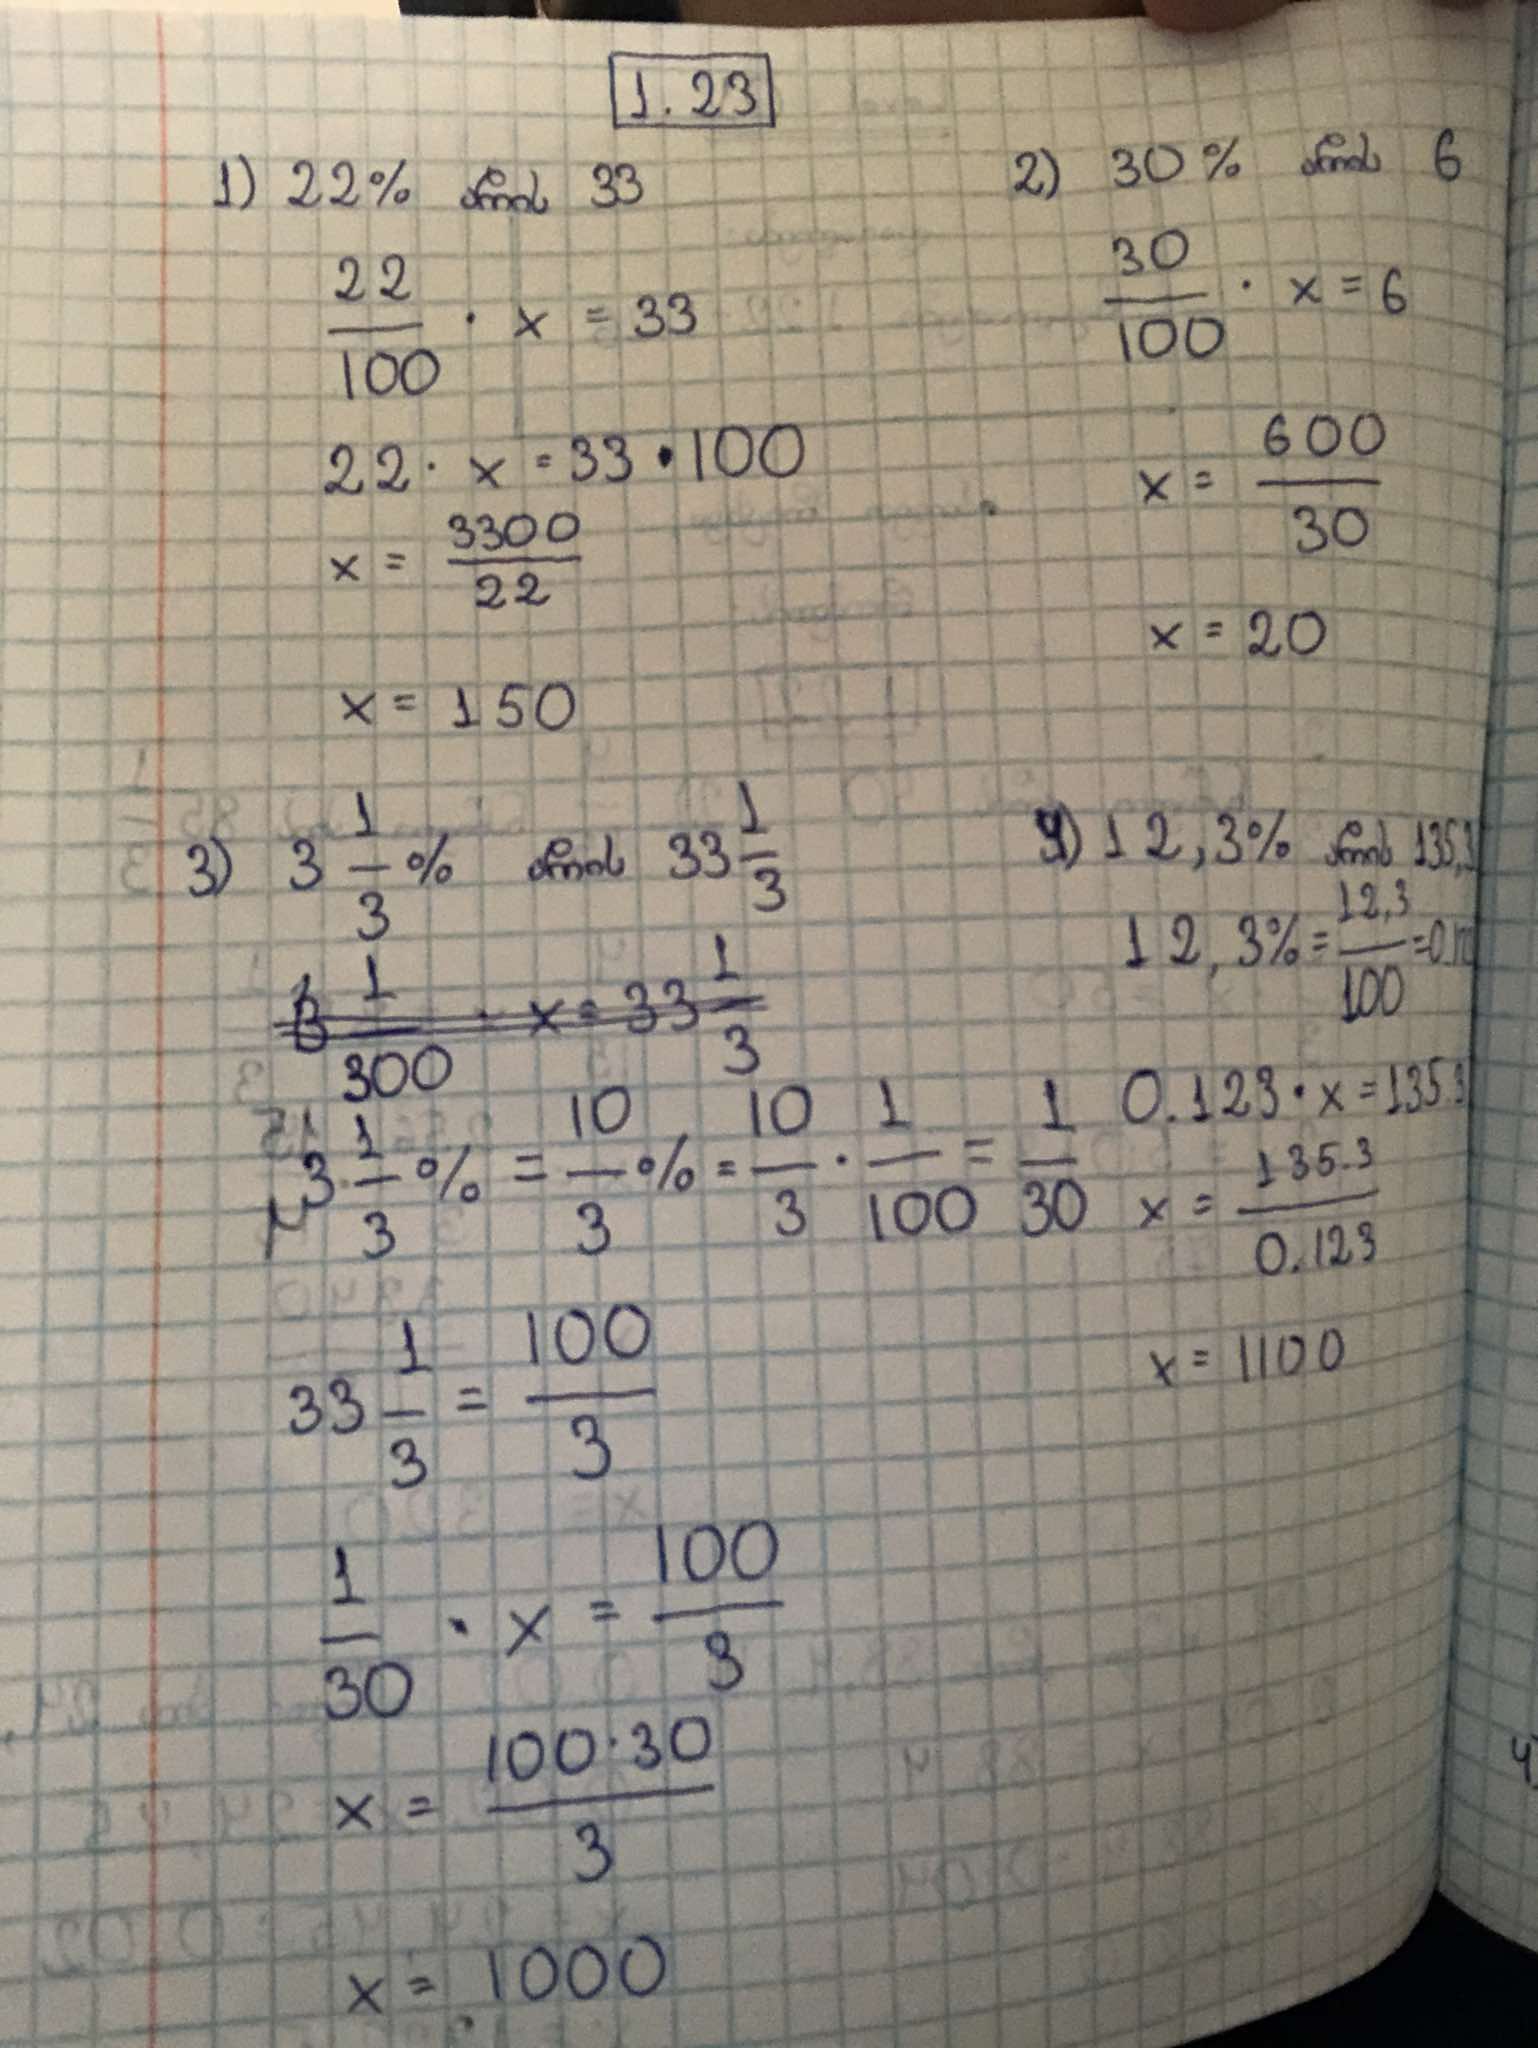 1.23
1) 22% არის 33
22/100 · x = 33
22 · x = 33 · 100
x = 3300/22
x = 150
2) 30% არის 6
30/100 · x = 6
x = 600/30
x = 20
3) 3 1/3 % არის 33 1/3
3 1/300 · x = 33 1/3
3 1/3 % = 10/3 % = 10/3 · 1/100 = 1/30
33 1/3 = 100/3
1/30 · x = 100/3
x = 100·30/3
x = 1000
4) 12,3% არის 135,3
12,3% = 12,3/100 = 0.123
0.123 · x = 135.3
x = 135.3/0.123
x = 1100